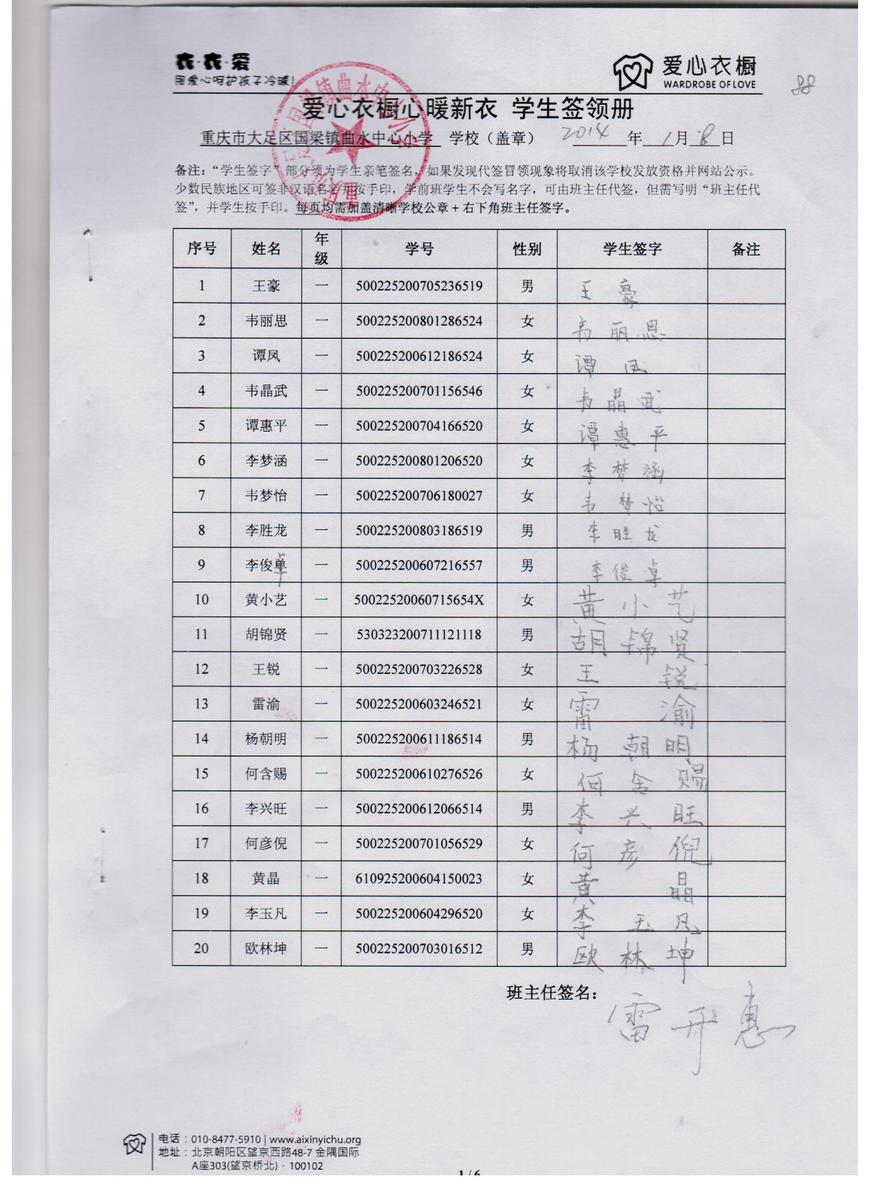 衣·衣·爱
用爱心呵护孩子冷暖!
爱心衣橱
WARDROBE OF LOVE
88
爱心衣橱心暖新衣 学生签领册
重庆市大足区国梁镇曲水中心小学 学校（盖章） 2014 年 1 月 8 日
备注：“学生签字”部分须为学生亲笔签名，如果发现代签冒领现象将取消该学校发放资格并网站公示。
少数民族地区可签非汉语名字并按手印，学前班学生不会写名字，可由班主任代签，但需写明“班主任代
签”，并学生按手印。每页均需加盖清晰学校公章+右下角班主任签字。
序号 姓名 年级 学号 性别 学生签字 备注
1 王豪 一 500225200705236519 男 王豪
2 韦丽思 一 500225200801286524 女 韦丽思
3 谭凤 一 500225200612186524 女 谭凤
4 韦晶武 一 500225200701156546 女 韦晶武
5 谭惠平 一 500225200704166520 女 谭惠平
6 李梦涵 一 500225200801206520 女 李梦涵
7 韦梦怡 一 500225200706180027 女 韦梦怡
8 李胜龙 一 500225200803186519 男 李胜龙
9 李俊卓 一 500225200607216557 男 李俊卓
10 黄小艺 一 50022520060715654X 女 黄小艺
11 胡锦贤 一 530323200711121118 男 胡锦贤
12 王锐 一 500225200703226528 女 王锐
13 雷渝 一 500225200603246521 女 雷渝
14 杨朝明 一 500225200611186514 男 杨朝明
15 何含赐 一 500225200610276526 女 何含赐
16 李兴旺 一 500225200612066514 男 李兴旺
17 何彦倪 一 500225200701056529 女 何彦倪
18 黄晶 一 610925200604150023 女 黄晶
19 李玉凡 一 500225200604296520 女 李玉凡
20 欧林坤 一 500225200703016512 男 欧林坤
班主任签名：
雷开惠
电话：010-8477-5910 | www.aixinyichu.org
地址：北京朝阳区望京西路48-7 金隅国际
A座303(望京桥北)·100102
1 / 6